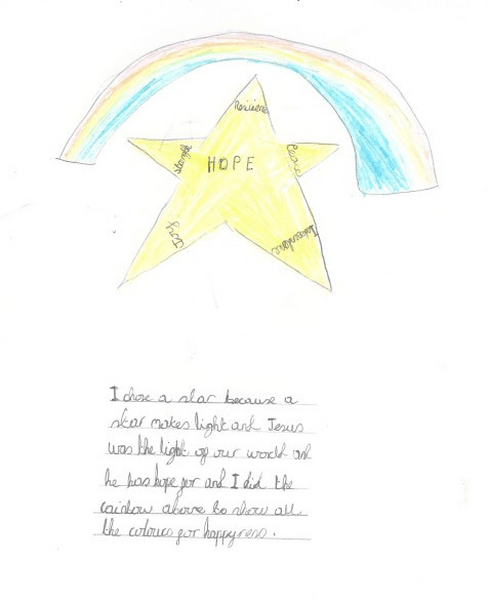 Resilience
Strength
HOPE
Peace
Joy
I chose a star because a
star makes light and Jesus
was the light of our world and
he has hope for and I did the
rainbow above to show all
the colours for happyness.